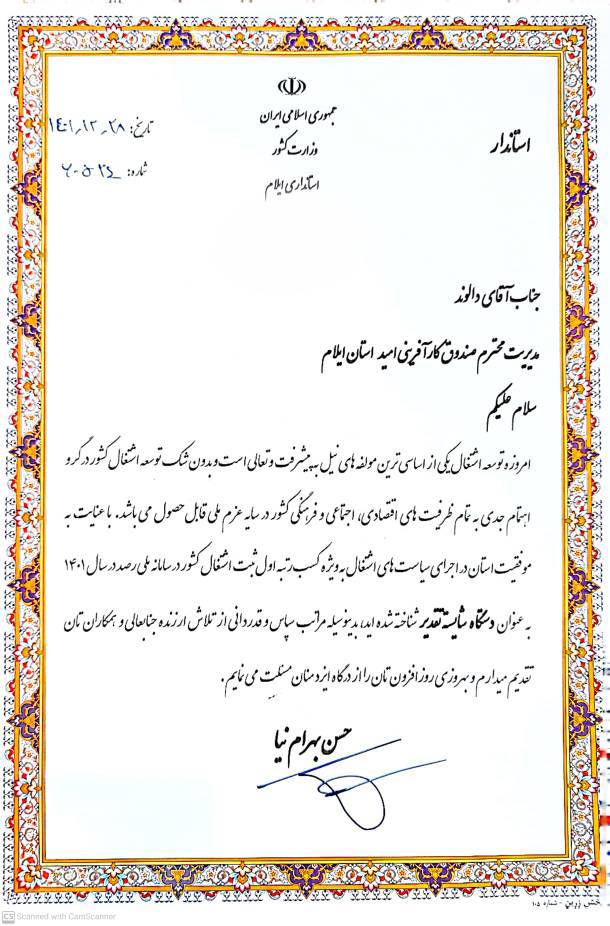 جمهوری اسلامی ایران
وزارت کشور
استانداری ایلام
استاندار
تاریخ: ۱۴۰۱٫۱۲٫۲۸
شماره:
جناب آقای دالوند
مدیریت محترم صندوق کارآفرینی امید استان ایلام
سلام علیکم
امروزه توسعه اشتغال یکی از اساسی ترین مولفه های نیل به پیشرفت و تعالی است و بدون شک توسعه اشتغال کشور در گرو
اهتمام جدی به تمام ظرفیت های اقتصادی، اجتماعی و فرهنگی کشور در سایه عزم ملی قابل حصول می باشد. با عنایت به
موفقیت استان در اجرای سیاست های اشتغال به ویژه کسب رتبه اول ثبت اشتغال کشور در سامانه ملی رصد در سال ۱۴۰۱
به عنوان دستگاه شایسته تقدیر شناخته شده اید، بدینوسیله مراتب سپاس و قدردانی از تلاش ارزنده جنابعالی و همکاران تان
تقدیم میدارم و بهروزی روز افزون تان را از درگاه ایزد منان مسئلت می نمایم.
حسن بهرام نیا
نقش زرین - شماره ۱۰۵
CS Scanned with CamScanner